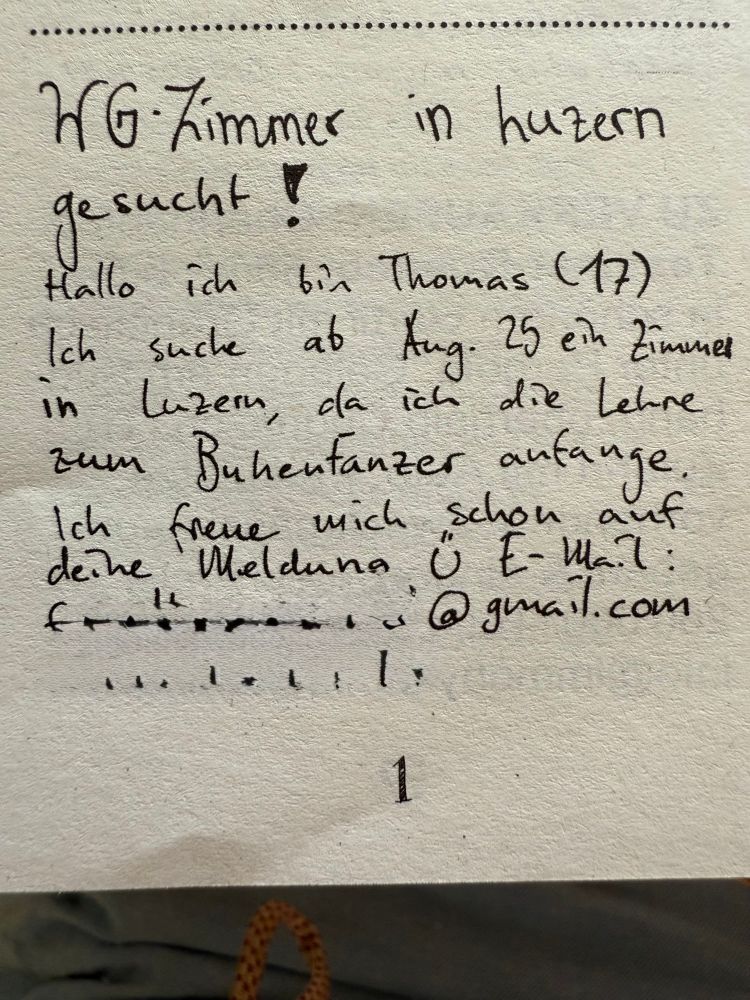 WG-Zimmer in Luzern
gesucht!
Hallo ich bin Thomas (17)
Ich suche ab Aug. 25 ein Zimmer
in Luzern, da ich die Lehre
zum Buhentanzer anfange.
Ich freue mich schon auf
deine Meldung Ü E-Mail:
@gmail.com
1